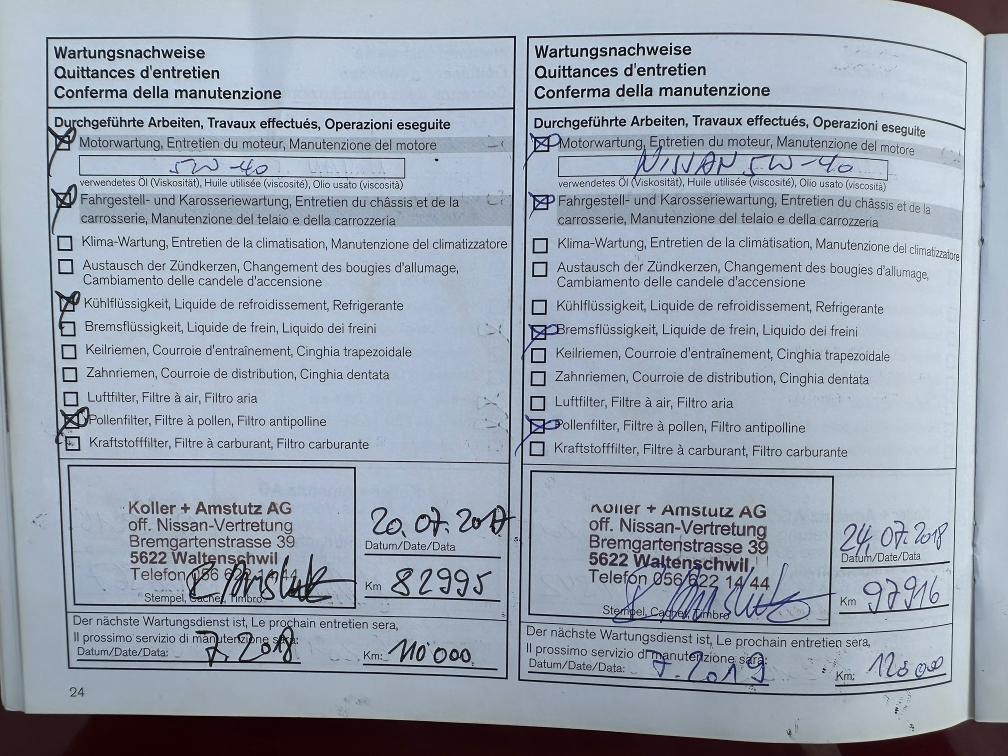 Wartungsnachweise
Quittances d'entretien
Conferma della manutenzione
Durchgeführte Arbeiten, Travaux effectués, Operazioni eseguite
Motorwartung, Entretien du moteur, Manutenzione del motore
5W-40
verwendetes Öl (Viskosität), Huile utilisée (viscosité), Olio usato (viscosità)
Fahrgestell- und Karosseriewartung, Entretien du châssis et de la
carrosserie, Manutenzione del telaio e della carrozzeria
Klima-Wartung, Entretien de la climatisation, Manutenzione del climatizzatore
Austausch der Zündkerzen, Changement des bougies d'allumage,
Cambiamento delle candele d'accensione
Kühlflüssigkeit, Liquide de refroidissement, Refrigerante
Bremsflüssigkeit, Liquide de frein, Liquido dei freini
Keilriemen, Courroie d'entraînement, Cinghia trapezoidale
Zahnriemen, Courroie de distribution, Cinghia dentata
Luftfilter, Filtre à air, Filtro aria
Pollenfilter, Filtre à pollen, Filtro antipolline
Kraftstofffilter, Filtre à carburant, Filtro carburante
Koller + Amstutz AG
off. Nissan-Vertretung
Bremgartenstrasse 39
5622 Waltenschwil
Telefon 056 622 14 44
Stempel, Cachet, Timbro
20.07.2017
Datum/Date/Data
Km 82995
Der nächste Wartungsdienst ist, Le prochain entretien sera,
Il prossimo servizio di manutenzione sarà:
Datum/Date/Data: 7.2018 Km: 110'000
24
Wartungsnachweise
Quittances d'entretien
Conferma della manutenzione
Durchgeführte Arbeiten, Travaux effectués, Operazioni eseguite
Motorwartung, Entretien du moteur, Manutenzione del motore
NISSAN 5W-40
verwendetes Öl (Viskosität), Huile utilisée (viscosité), Olio usato (viscosità)
Fahrgestell- und Karosseriewartung, Entretien du châssis et de la
carrosserie, Manutenzione del telaio e della carrozzeria
Klima-Wartung, Entretien de la climatisation, Manutenzione del climatizzatore
Austausch der Zündkerzen, Changement des bougies d'allumage,
Cambiamento delle candele d'accensione
Kühlflüssigkeit, Liquide de refroidissement, Refrigerante
Bremsflüssigkeit, Liquide de frein, Liquido dei freini
Keilriemen, Courroie d'entraînement, Cinghia trapezoidale
Zahnriemen, Courroie de distribution, Cinghia dentata
Luftfilter, Filtre à air, Filtro aria
Pollenfilter, Filtre à pollen, Filtro antipolline
Kraftstofffilter, Filtre à carburant, Filtro carburante
Koller + Amstutz AG
off. Nissan-Vertretung
Bremgartenstrasse 39
5622 Waltenschwil
Telefon 056 622 14 44
Stempel, Cachet, Timbro
24.07.2018
Datum/Date/Data
Km 97916
Der nächste Wartungsdienst ist, Le prochain entretien sera,
Il prossimo servizio di manutenzione sarà:
Datum/Date/Data: 7.2019 Km: 120000